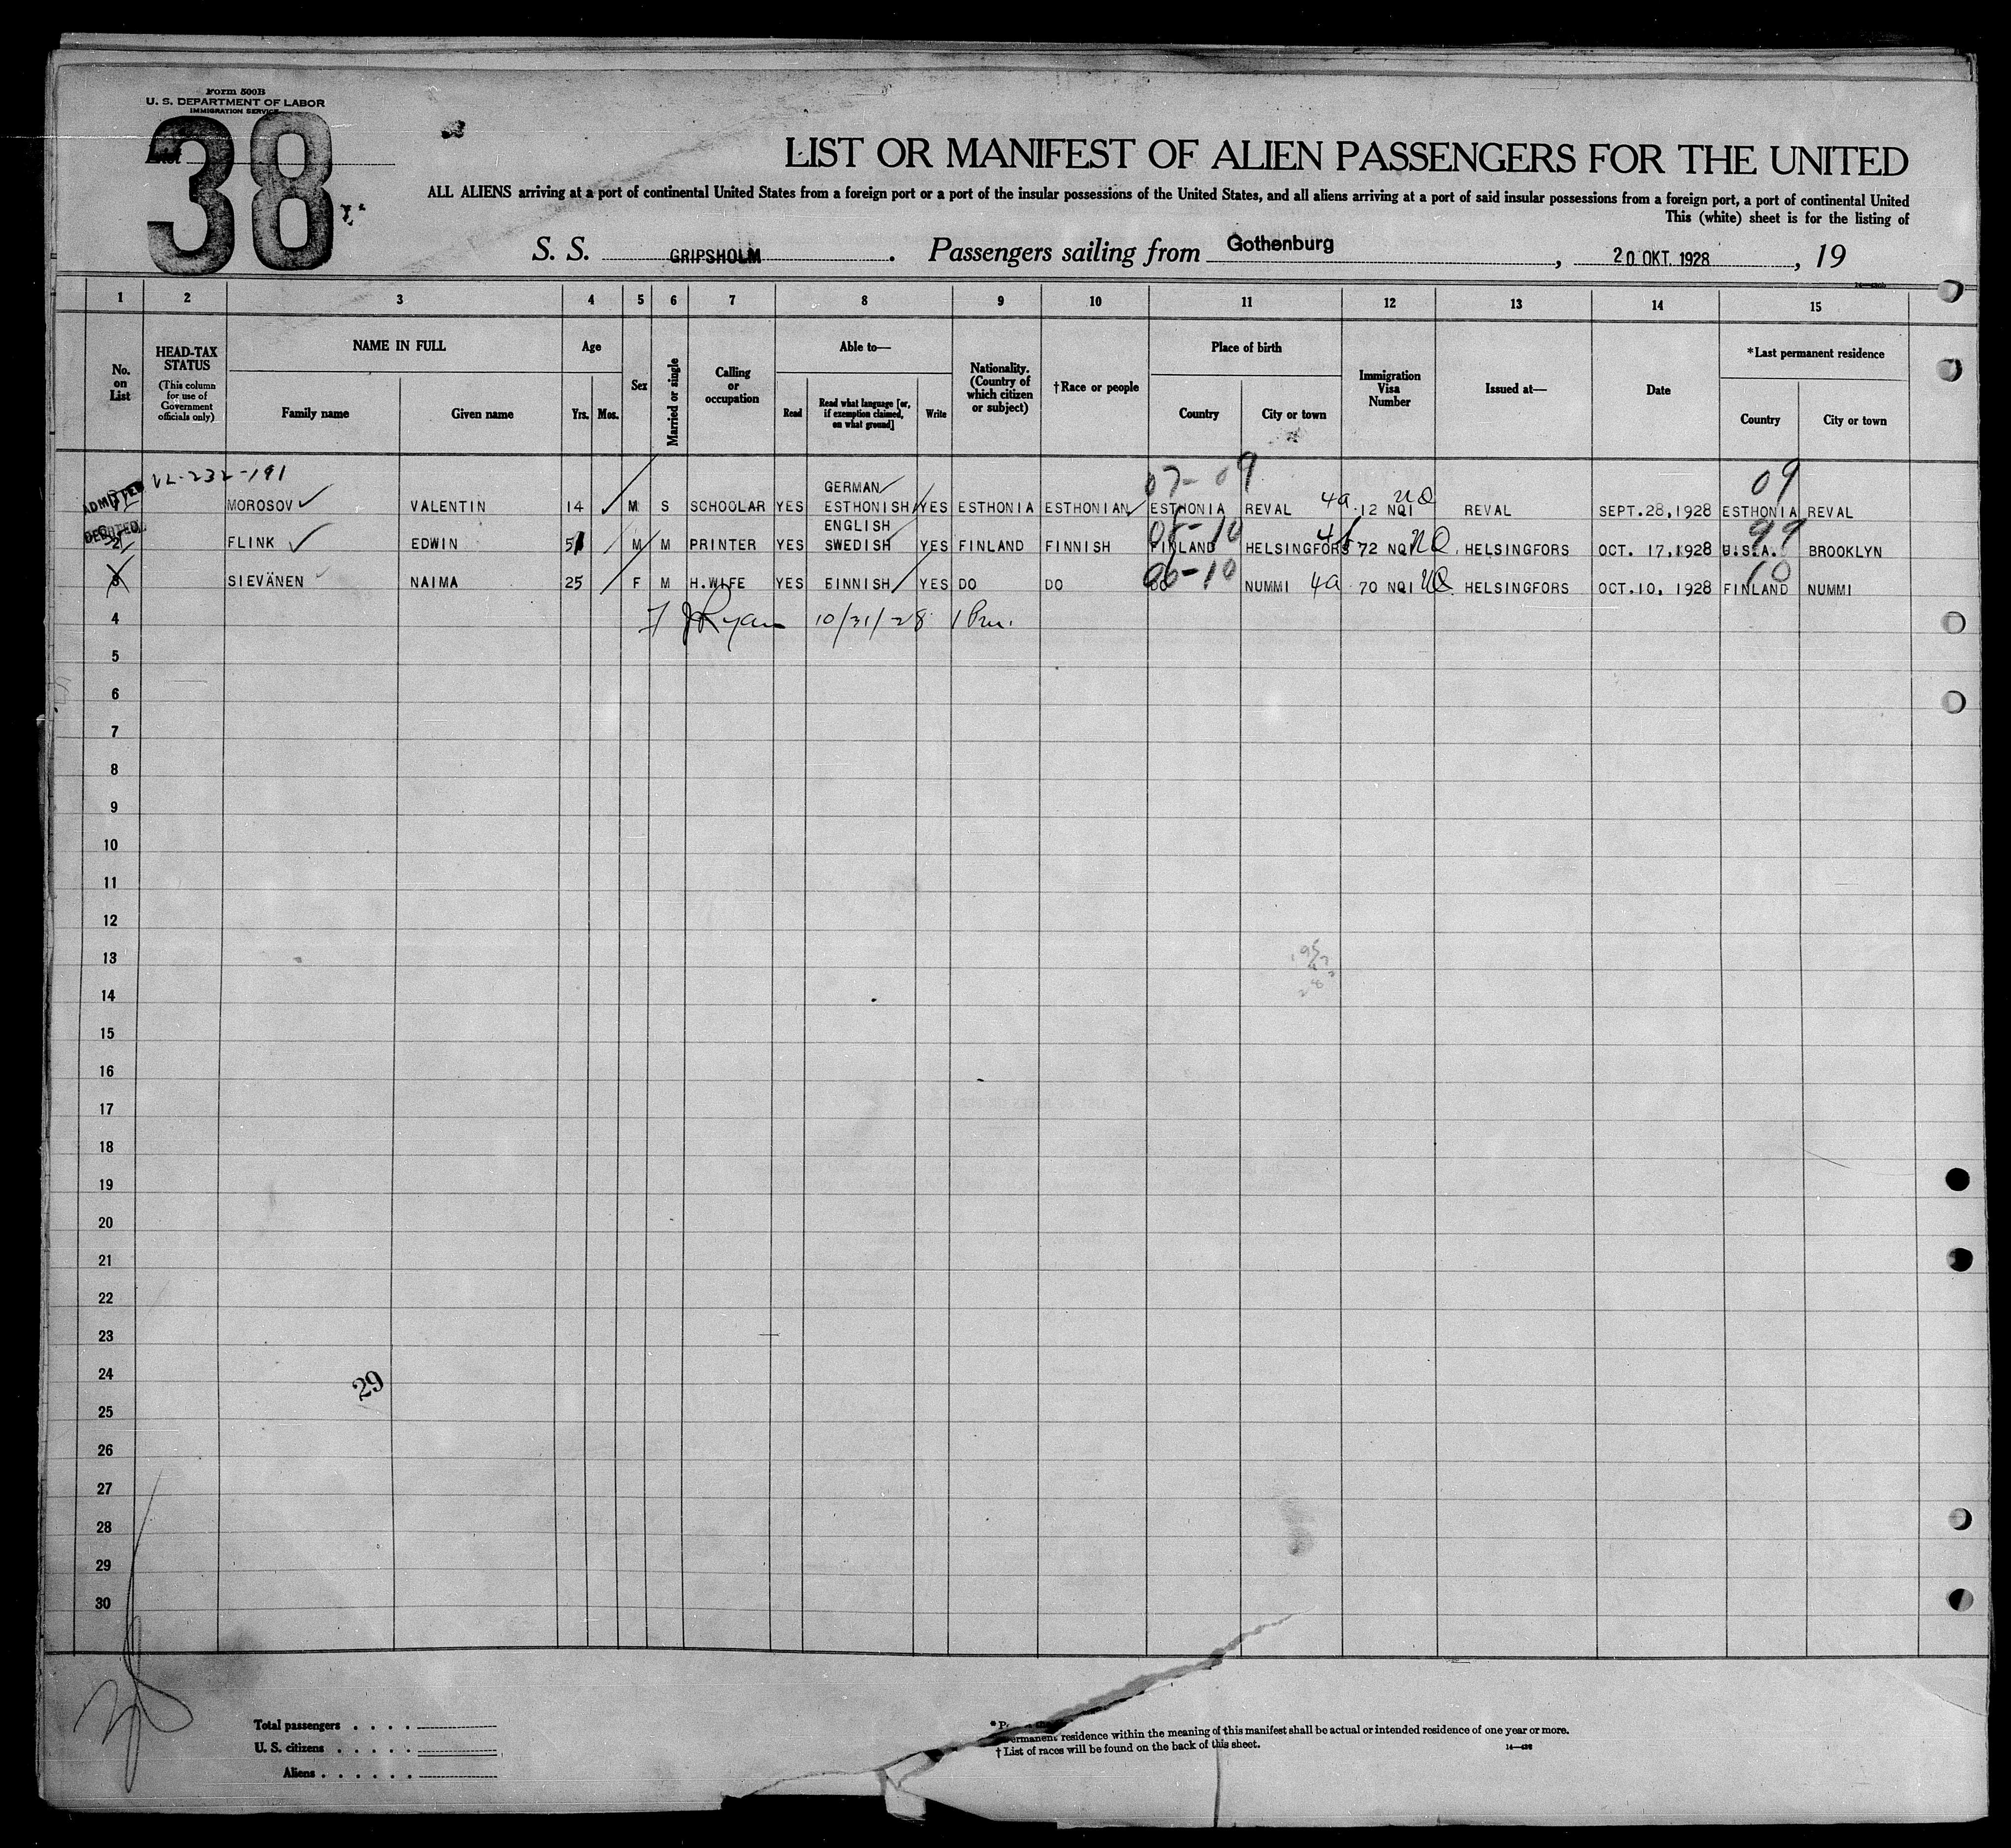 Form 500B
U. S. DEPARTMENT OF LABOR
IMMIGRATION SERVICE
38
LIST OR MANIFEST OF ALIEN PASSENGERS FOR THE UNITED
ALL ALIENS arriving at a port of continental United States from a foreign port or a port of the insular possessions of the United States, and all aliens arriving at a port of said insular possessions from a foreign port, a port of continental United
This (white) sheet is for the listing of
S. S. GRIPSHOLM. Passengers sailing from Gothenburg, 20 OKT. 1928, 19
1 2 3 4 5 6 7 8 9 10 11 12 13 14 15
No. on List
HEAD-TAX STATUS
(This column for use of Government officials only)
NAME IN FULL
Family name
Given name
Age
Yrs.
Mos.
Sex
Married or single
Calling or occupation
Able to—
Read
Read what language [or, if exemption claimed, on what ground]
Write
Nationality. (Country of which citizen or subject)
†Race or people
Place of birth
Country
City or town
Immigration Visa Number
Issued at—
Date
*Last permanent residence
Country
City or town
07-09 09
ADMITTED MOROSOV VALENTIN 14 M S SCHOOLAR YES GERMAN ESTHONISH YES ESTHONIA ESTHONIAN ESTHONIA REVAL 4a 12 NQI REVAL SEPT.28,1928 ESTHONIA REVAL
99
FLINK EDWIN 51 M M PRINTER YES ENGLISH SWEDISH YES FINLAND FINNISH FINLAND HELSINGFORS 72 NQI HELSINGFORS OCT. 17,1928 U.S.A. BROOKLYN
06-10 10
3 SIEVÄNEN NAIMA 25 F M H.WIFE YES FINNISH YES DO DO DO NUMMI 4a 70 NQI HELSINGFORS OCT.10, 1928 FINLAND NUMMI
4 Ryan 10/31/28
5
6
7
8
9
10
11
12
13
14
15
16
17
18
19
20
21
22
23
24
29
25
26
27
28
29
30
Total passengers
U. S. citizens
Aliens
permanent residence within the meaning of this manifest shall be actual or intended residence of one year or more.
† List of races will be found on the back of this sheet.